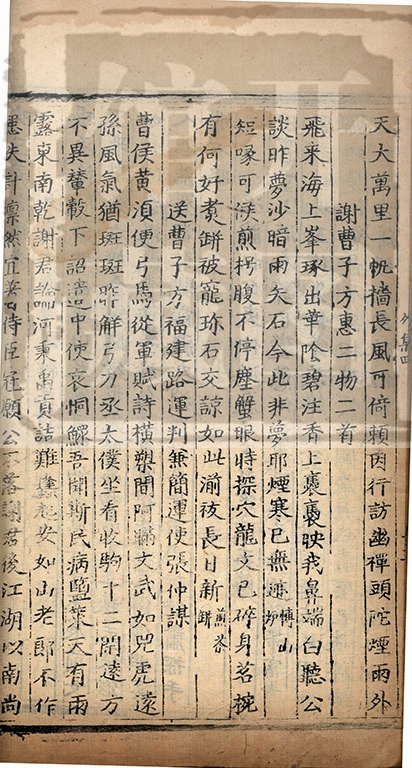 天大萬里一帆檣長風可倚賴因行訪幽禪頭陀煙雨外
謝曹子方惠二物二首
飛来海上峯琢出華陰碧注香上裊裊映我鼻端白聽公
談昨夢沙暗雨矢石今此非夢耶煙寒已無迹博山爐
短喙可候煎枵腹不停塵蟹眼時探穴龍文已碎身茗椀
有何好煮缾被寵珎石交諒如此湔祓長日新煎茶缾
送曹子方福建路運判兼簡運使張仲謀
曹侯黄須便弓馬從軍賦詩橫槊間阿瞞文武如兕虎遠
孫風氣猶斑斑昨解弓刀丞太僕坐看收駒十二閑遠方
不異輦轂下詔遣中使哀恫鰥吾聞斯民病鹽筴天有雨
露東南乾謝君論河秉禹貢詰難蠭起安如山老郎不作
患失計凛然宜著侍臣冠願公不落謝君後江湖以南尚